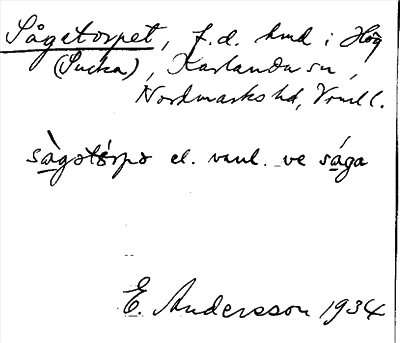 Sågetorpet, f.d. hmd i Hög
(Sucka), Karlanda sn,
Nordmarks hd, Vrml.
sàgətórpə el. vanl. ve sága
E. Andersson 1934